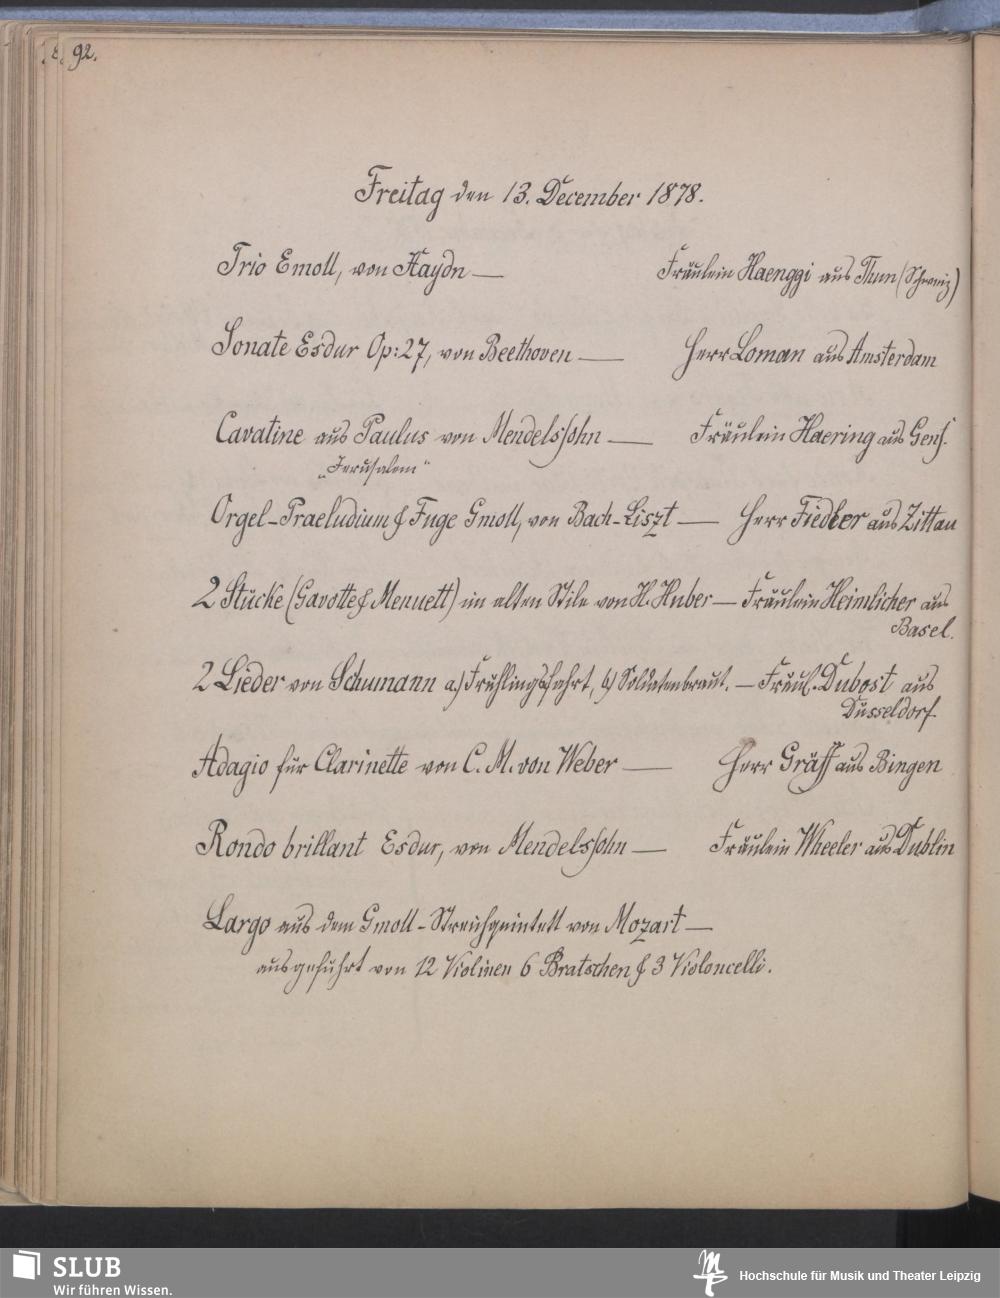 92.
Freitag den 13. December 1878.
Trio Emoll, von Haydn — Fräulein Haenggi aus Thun (Schweiz)
Sonate Esdur Op: 27, von Beethoven — Herr Loman aus Amsterdam
Cavatine aus Paulus von Mendelssohn — Fräulein Haering aus Genf.
„Jerusalem“
Orgel-Praeludium & Fuge Gmoll, von Bach-Liszt — Herr Fiedler aus Zittau
2 Stücke (Gavotte & Menuett) im alten Stile von H. Huber — Fräulein Heimlicher aus
Basel.
2 Lieder von Schumann a.) Frühlingsfahrt, b.) Soldatenbraut. — Fräul. Dubost aus
Düsseldorf.
Adagio für Clarinette von C. M. von Weber — Herr Gräff aus Bingen
Rondo brillant Esdur, von Mendelssohn — Fräulein Wheeler aus Dublin
Largo aus dem Gmoll-Streichquintett von Mozart —
ausgeführt von 12 Violinen 6 Bratschen & 3 Violoncelli.
SLUB
Wir führen Wissen.
Hochschule für Musik und Theater Leipzig